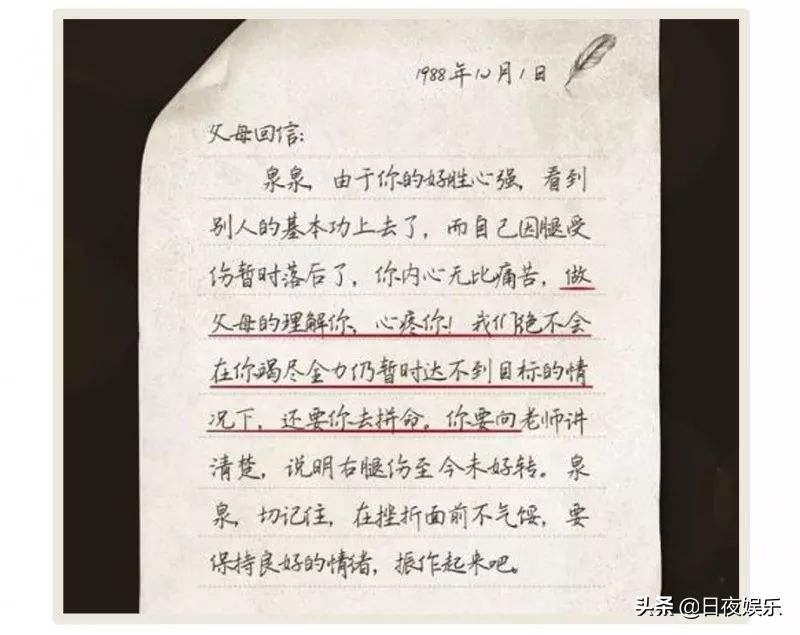 1988年12月1日
父母回信:
泉泉,由于你的好胜心强,看到
别人的基本功上去了,而自己因腿受
伤暂时落后了,你内心无比痛苦,做
父母的理解你,心疼你!我们绝不会
在你竭尽全力仍暂时达不到目标的情
况下,还要你去拼命。你要向老师讲
清楚,说明右腿伤至今未好转。泉
泉,切记住,在挫折面前不气馁,要
保持良好的情绪,振作起来吧。
头条@日夜娱乐